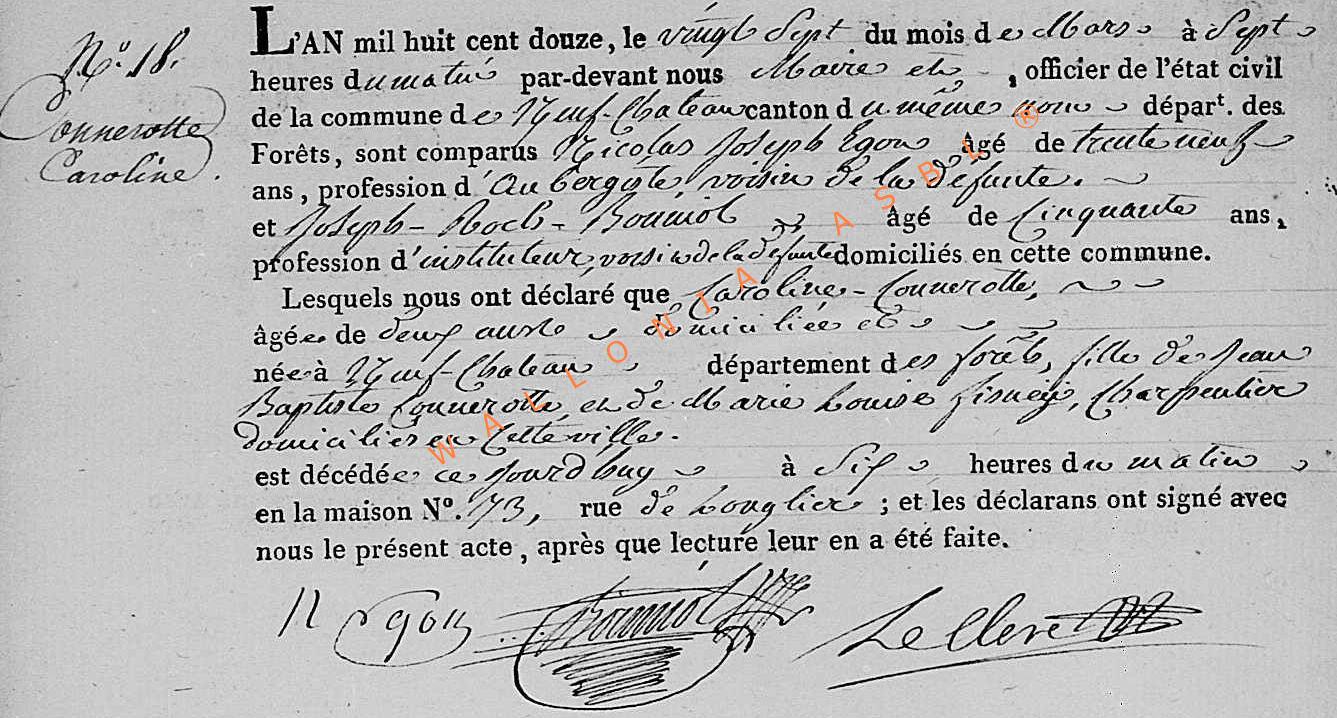 N.° 18.
Connerotte
Caroline.
L'AN mil huit cent douze, le vingt Sept du mois de Mars à Sept
heures du matin par-devant nous Maire et , officier de l'état civil
de la commune de Neuf-Chateau canton du même nom départ. des
Forêts, sont comparus Nicolas Joseph Egon âgé de trente neuf
ans, profession d'Aubergiste, voisin de la défunte.
et Joseph-Roch-Bouniol âgé de Cinquante ans,
profession d'instituteur, voisin de la défunte domiciliés en cette commune.
Lesquels nous ont déclaré que Caroline-Connerotte,
âgée de deux ans domiciliée et
née à Neuf-Chateau département des forêts, fille de Jean
Baptiste Connerotte, et de Marie Louise, Charpentier
domiciliés en Cette ville.
est décédée ce jourdhuy à Six heures du matin
en la maison N°. 73, rue de Longlier ; et les déclarans ont signé avec
nous le présent acte, après que lecture leur en a été faite.
N Egon Bouniol Le Clerc
WALLONIA ASBL ®